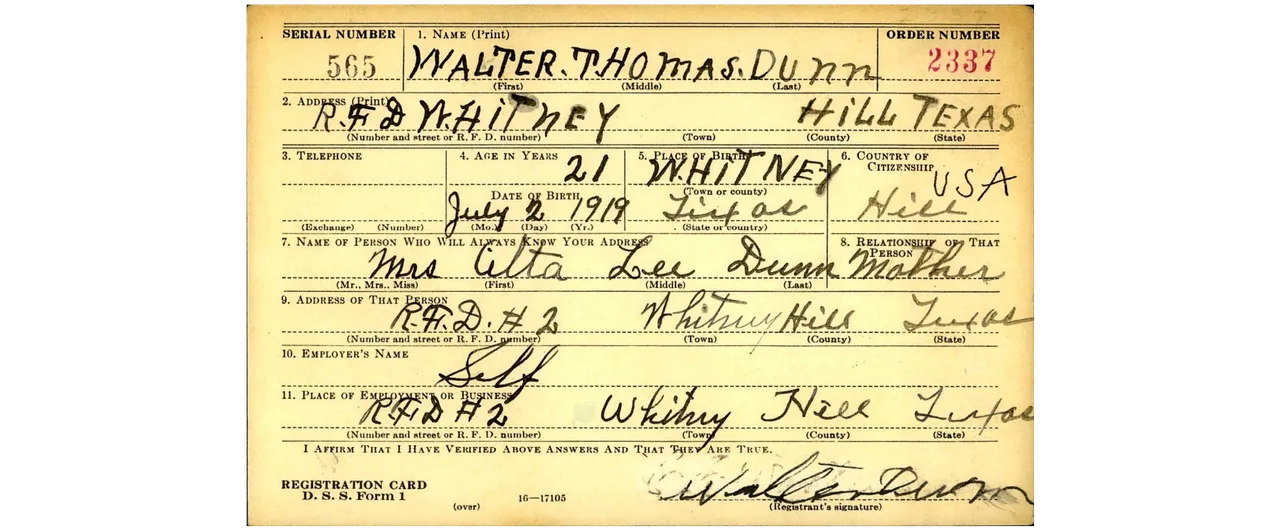 SERIAL NUMBER 1. NAME (Print) ORDER NUMBER
565 WALTER. THOMAS. DUnn 2337
(First) (Middle) (Last)
2. ADDRESS (Print)
R.F.D WHiTnEY HiLL TEXAS
(Number and street or R. F. D. number) (Town) (County) (State)
3. TELEPHONE 4. AGE IN YEARS 5. PLACE OF BIRTH 6. COUNTRY OF CITIZENSHIP
21 WHITNEY USA
DATE OF BIRTH (Town or county)
July 2 1919 Texas Hill
(Exchange) (Number) (Mo.) (Day) (Yr.) (State or country)
7. NAME OF PERSON WHO WILL ALWAYS KNOW YOUR ADDRESS 8. RELATIONSHIP OF THAT PERSON
Mrs Alta Lee Dunn Mother
(Mr., Mrs., Miss) (First) (Middle) (Last)
9. ADDRESS OF THAT PERSON
R.F.D. # 2 Whitney Hill Texas
(Number and street or R. F. D. number) (Town) (County) (State)
10. EMPLOYER'S NAME
Self
11. PLACE OF EMPLOYMENT OR BUSINESS
R.F.D # 2 Whitney Hill Texas
(Number and street or R. F. D. number) (Town) (County) (State)
I AFFIRM THAT I HAVE VERIFIED ABOVE ANSWERS AND THAT THEY ARE TRUE.
REGISTRATION CARD Walter Dunn
D. S. S. Form 1 16—17105 (Registrant's signature)
(over)